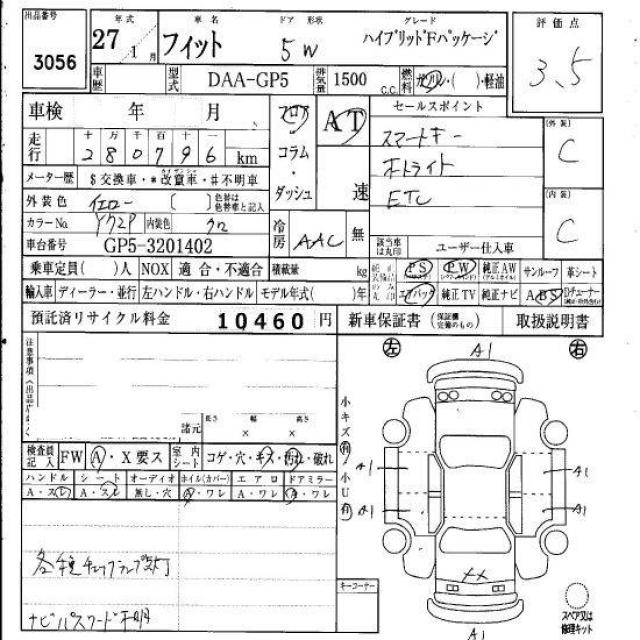 出品番号 年式 車名 ドア 形状 グレード 評価点
3056 27 1月 フィット 5W ハイブリッドFパッケージ 3.5
車歴 型式 DAA-GP5 排気量 1500 C.C. 燃料 ガソリン・( )・軽油
車検 年 月 フロア AT セールスポイント (外装)
走行 十 万 千 百 十 一 コラム スマートキー C
280796 km オートライト
メーター歴 $交換車・*改竄車・#不明車 ダッシュ 速 ETC (内装)
外装色 イエロー ( ) 色替は色替車と記入 C
カラーNo. Y72P 内装色 クロ 冷房 AAC 無
車台番号 GP5-3201402 該当車は丸印 ユーザー仕入車
乗車定員( )人 NOX 適合・不適合 積載量 kg PS PW 純正AW サンルーフ 革シート
輸入車 ディーラー・並行 左ハンドル・右ハンドル モデル年式( )年 エアバッグ 純正TV 純正ナビ ABS Dチューナー
預託済リサイクル料金 10460 円 新車保証書 (保証欄完備のもの) 取扱説明書
注意事項 左 A1 右
諸元 長さ 幅 高さ 小キズ有・小U有
× ×
検査員記入 FW A・X要ス 室内シート コゲ・穴・キズ・汚れ・破れ A1 A1
ハンドル シート オーディオ ホイル(カバー) エアロ ドアミラー
A・スレ A・スレ 無し・穴 A・ワレ A・ワレ A・ワレ A1 A1
各種チェックランプ点灯 XX
キーコーナー
ナビパスワード不明 A1 スペア又は修理キット